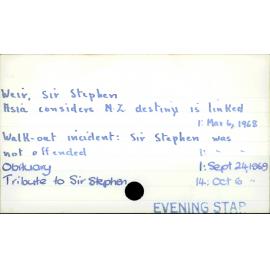 Weir, Sir Stephen
Asia considers N.Z destiny is linked
1: Mar 6, 1968
Walk-out incident: Sir Stephen was
not offended 1: " "
Obituary 1: Sept 24, 1969
Tribute to Sir Stephen 14: Oct 6 "
EVENING STAR